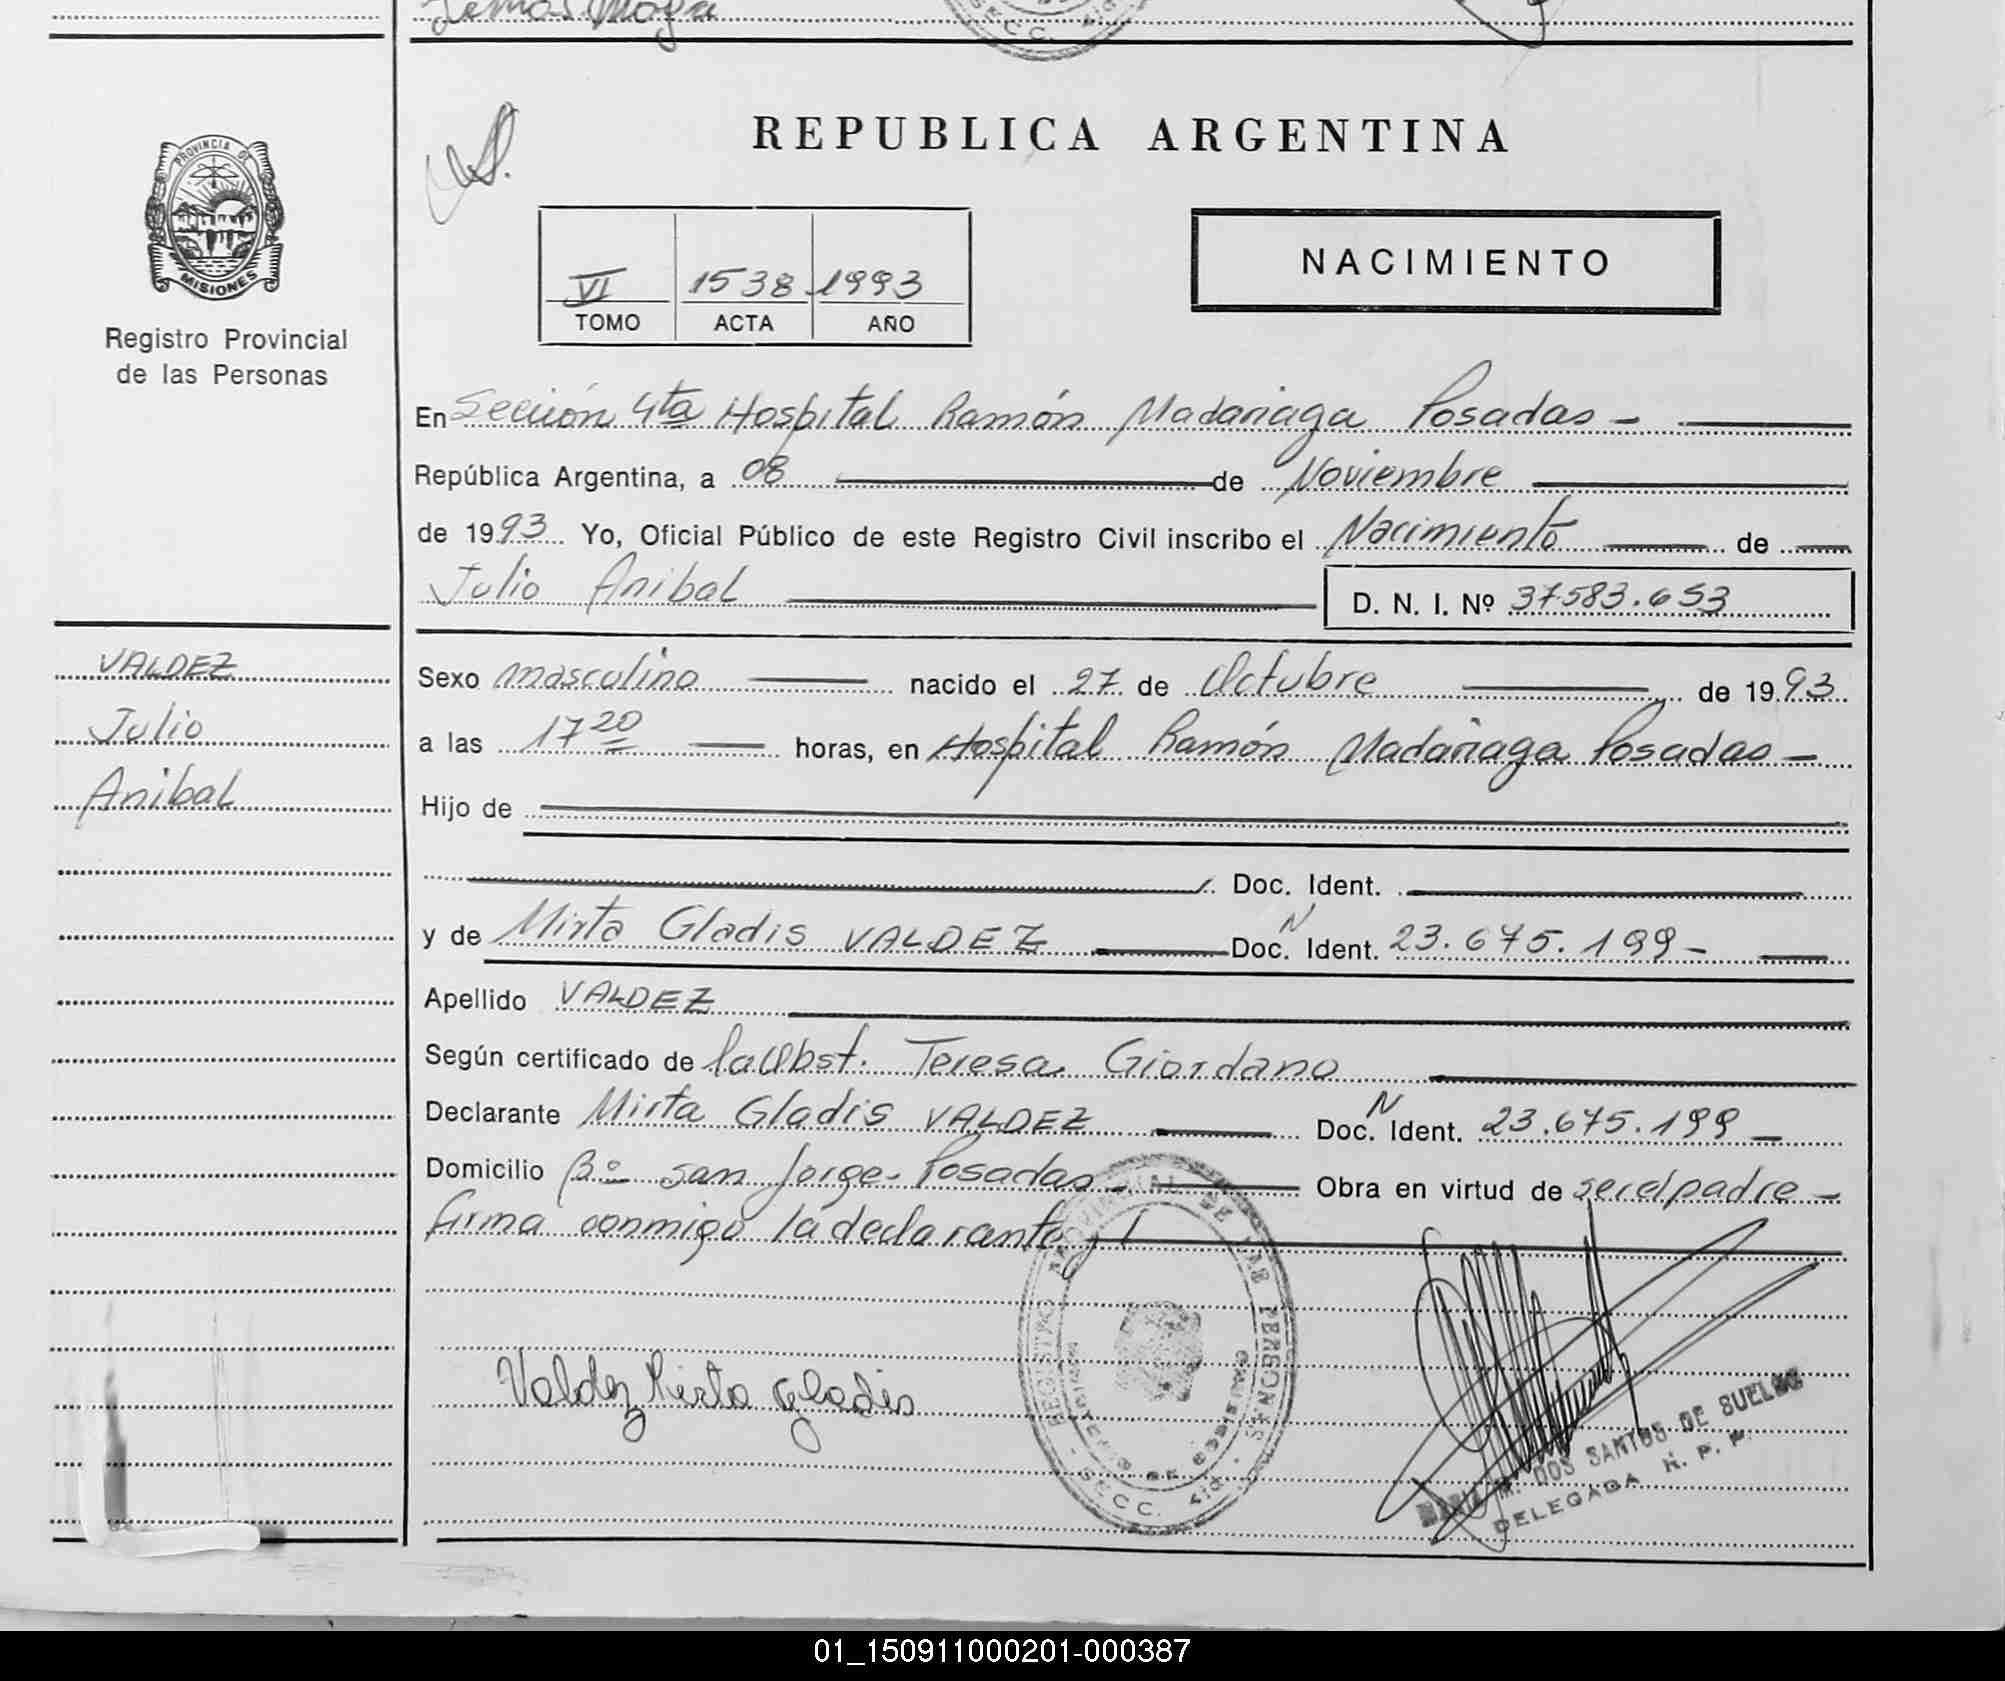 Tomás Moya
SECC. 4ta
REPUBLICA ARGENTINA
PROVINCIA DE
MISIONES
Registro Provincial
de las Personas
VI 1538 1993
TOMO ACTA AÑO
NACIMIENTO
En Sección 4ta Hospital Ramón Madariaga Posadas -
República Argentina, a 08 de Noviembre
de 1993 Yo, Oficial Público de este Registro Civil inscribo el Nacimiento de
Julio Anibal D. N. I. Nº 37583.653
VALDEZ
Julio
Anibal
Sexo masculino nacido el 27 de Octubre de 1993
a las 17 20 horas, en Hospital Ramón Madariaga Posadas -
Hijo de
Doc. Ident.
y de Mirta Gladis VALDEZ Doc. N Ident. 23.675.199 -
Apellido VALDEZ
Según certificado de la Obst. Teresa Giordano
Declarante Mirta Gladis VALDEZ Doc. N Ident. 23.675.199 -
Domicilio Bº San Jorge - Posadas - Obra en virtud de ser el padre -
firma conmigo la declarante
Valdez Mirta Gladis
REGISTRO PROVINCIAL DE LAS PERSONAS
MINISTERIO DE GOBIERNO
- SECC. 4ta -
MARIA M. DOS SANTOS DE SUELDO
DELEGADA R. P. P.
01_150911000201-000387